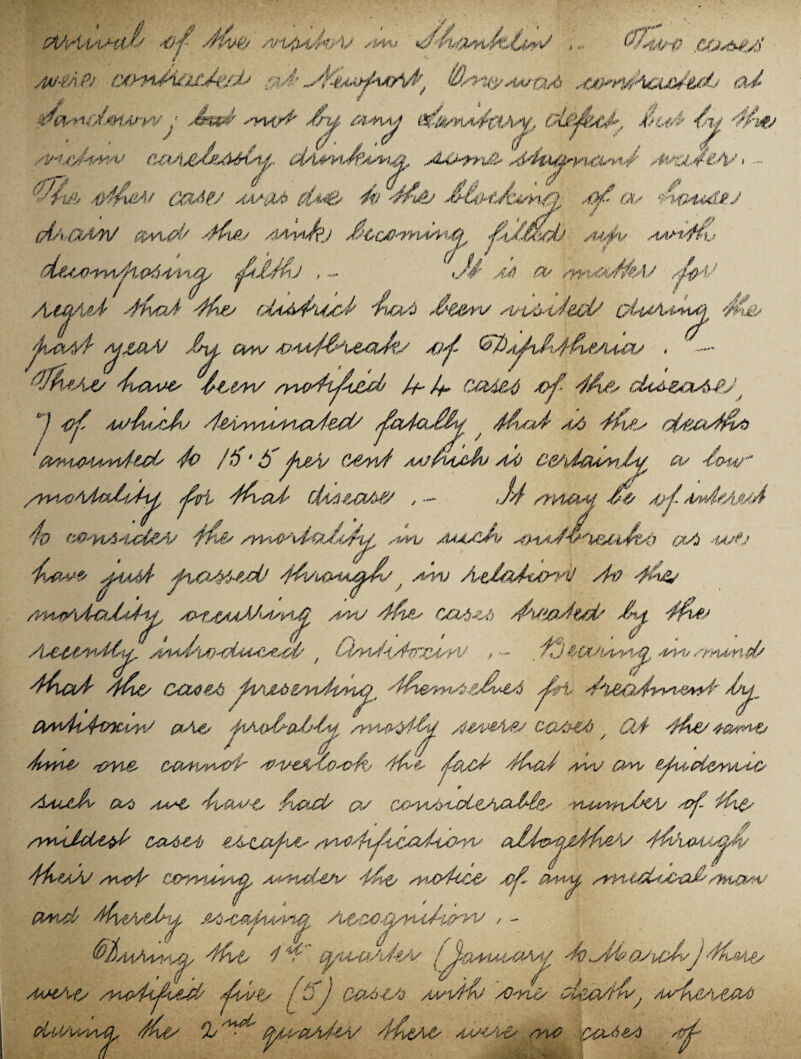 arrival of the visitor in Shanklin .. Two cases
were contracted at Newport, One was contracted at
Sandown ; but not by any Sanitary, defect, but by the
victim carelessly drinking some stagnant water. –
The other case was due to the blocking of a house
drain and the sinks becoming filled up with
decomposing filth . – It is a matter for
regret that the district has been visited during the
past year by an outbreak of Diphtheria . –
There have been notified 44 cases of the disease,
7 of which terminated fatally, that is the deaths
amounted to 15.5 per cent which is certainly a low
mortality for that disease . – It may be of interest
to consider the mortality in such outbreaks as we
have just passed through, in relation to the
mortality occurring in the cases treated by the
recently introduced, Antitoxin . – Bearing in mind
that the cases presenting themselves for treatment by
antitoxin are probably mostly severe cases, At the same
time one cannot overlook the fact that in an epidemic
such as we have had a considerable number of the
mildest cases escape notification altogether through
their not coming under the notice of any medical man
and thereby escaping recognition . –
During the 1st quarter (January to March) there
were notified five (5) cases with one death, whereas
during the 2nd quarter there were no cases of